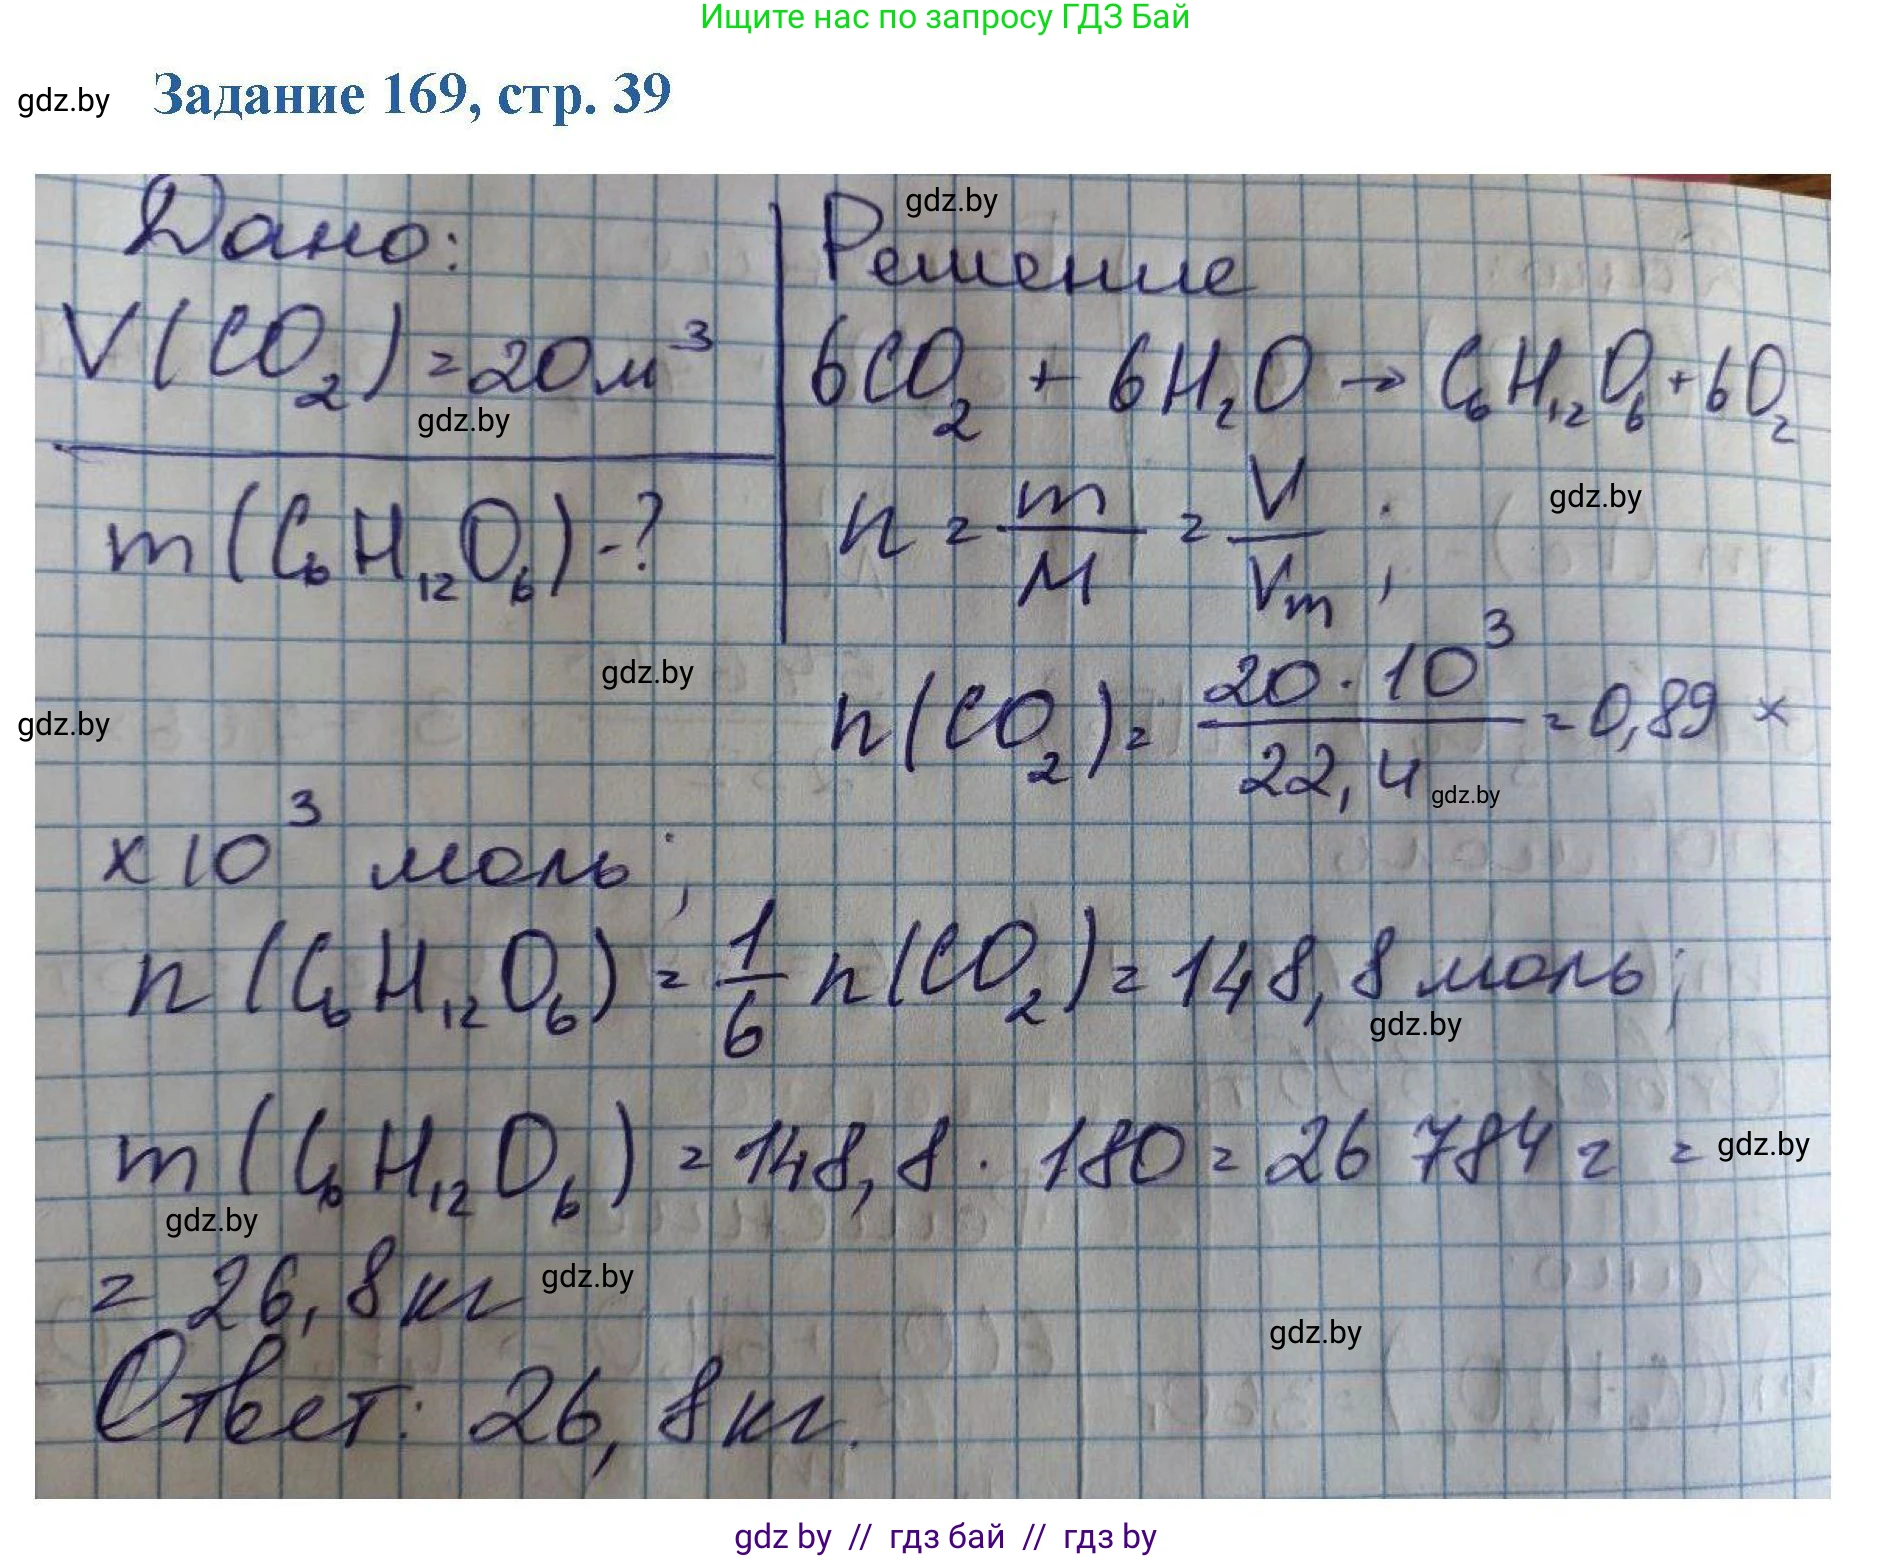 Ищите нас по запросу ГДЗ Бай
gdz.by Задание 169, стр. 39
gdz.by
Дано:
V(CO₂) = 20 м³
gdz.by
m(C₆H₁₂O₆) - ?
Решение
6CO₂ + 6H₂O → C₆H₁₂O₆ + 6O₂
gdz.by
n = m/M = V/Vm ;
gdz.by
gdz.by
n(CO₂) = 20 · 10³/22,4 = 0,89 ×
gdz.by
× 10³ моль ;
n(C₆H₁₂O₆) = 1/6 n(CO₂) = 148,8 моль ;
gdz.by
m(C₆H₁₂O₆) = 148,8 · 180 = 26 784 г =
gdz.by
gdz.by
= 26,8 кг
gdz.by
gdz.by
Ответ: 26,8 кг.
gdz by // гдз бай // гдз by